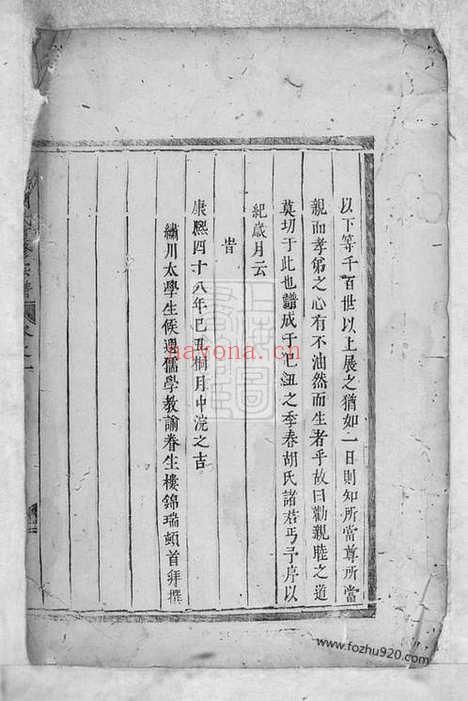 以下等千百世以上展之猶如一日則知所當尊所當
親而孝弟之心有不油然而生者乎故曰勸親睦之道
莫切于此也譜成于己丑之季春胡氏諸君丐予序以
紀歲月云
旹
康熙四十八年己丑桐月中浣之吉
繡川太學生候選儒學教諭眷生樓錦瑞頓首拜撰
nayona.cn
www.fozhu920.com